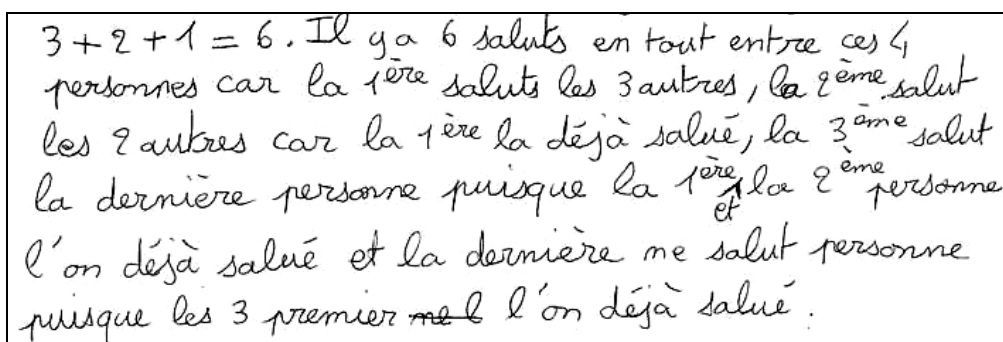 3 + 2 + 1 = 6. Il y a 6 saluts en tout entre ces 4
personnes car la 1ère saluts les 3 autres, la 2ème salut
les 2 autres car la 1ère la déjà salué, la 3ème salut
la dernière personne puisque la 1ère et la 2ème personne
l'on déjà salué et la dernière ne salut personne
puisque les 3 premier l'on déjà salué.